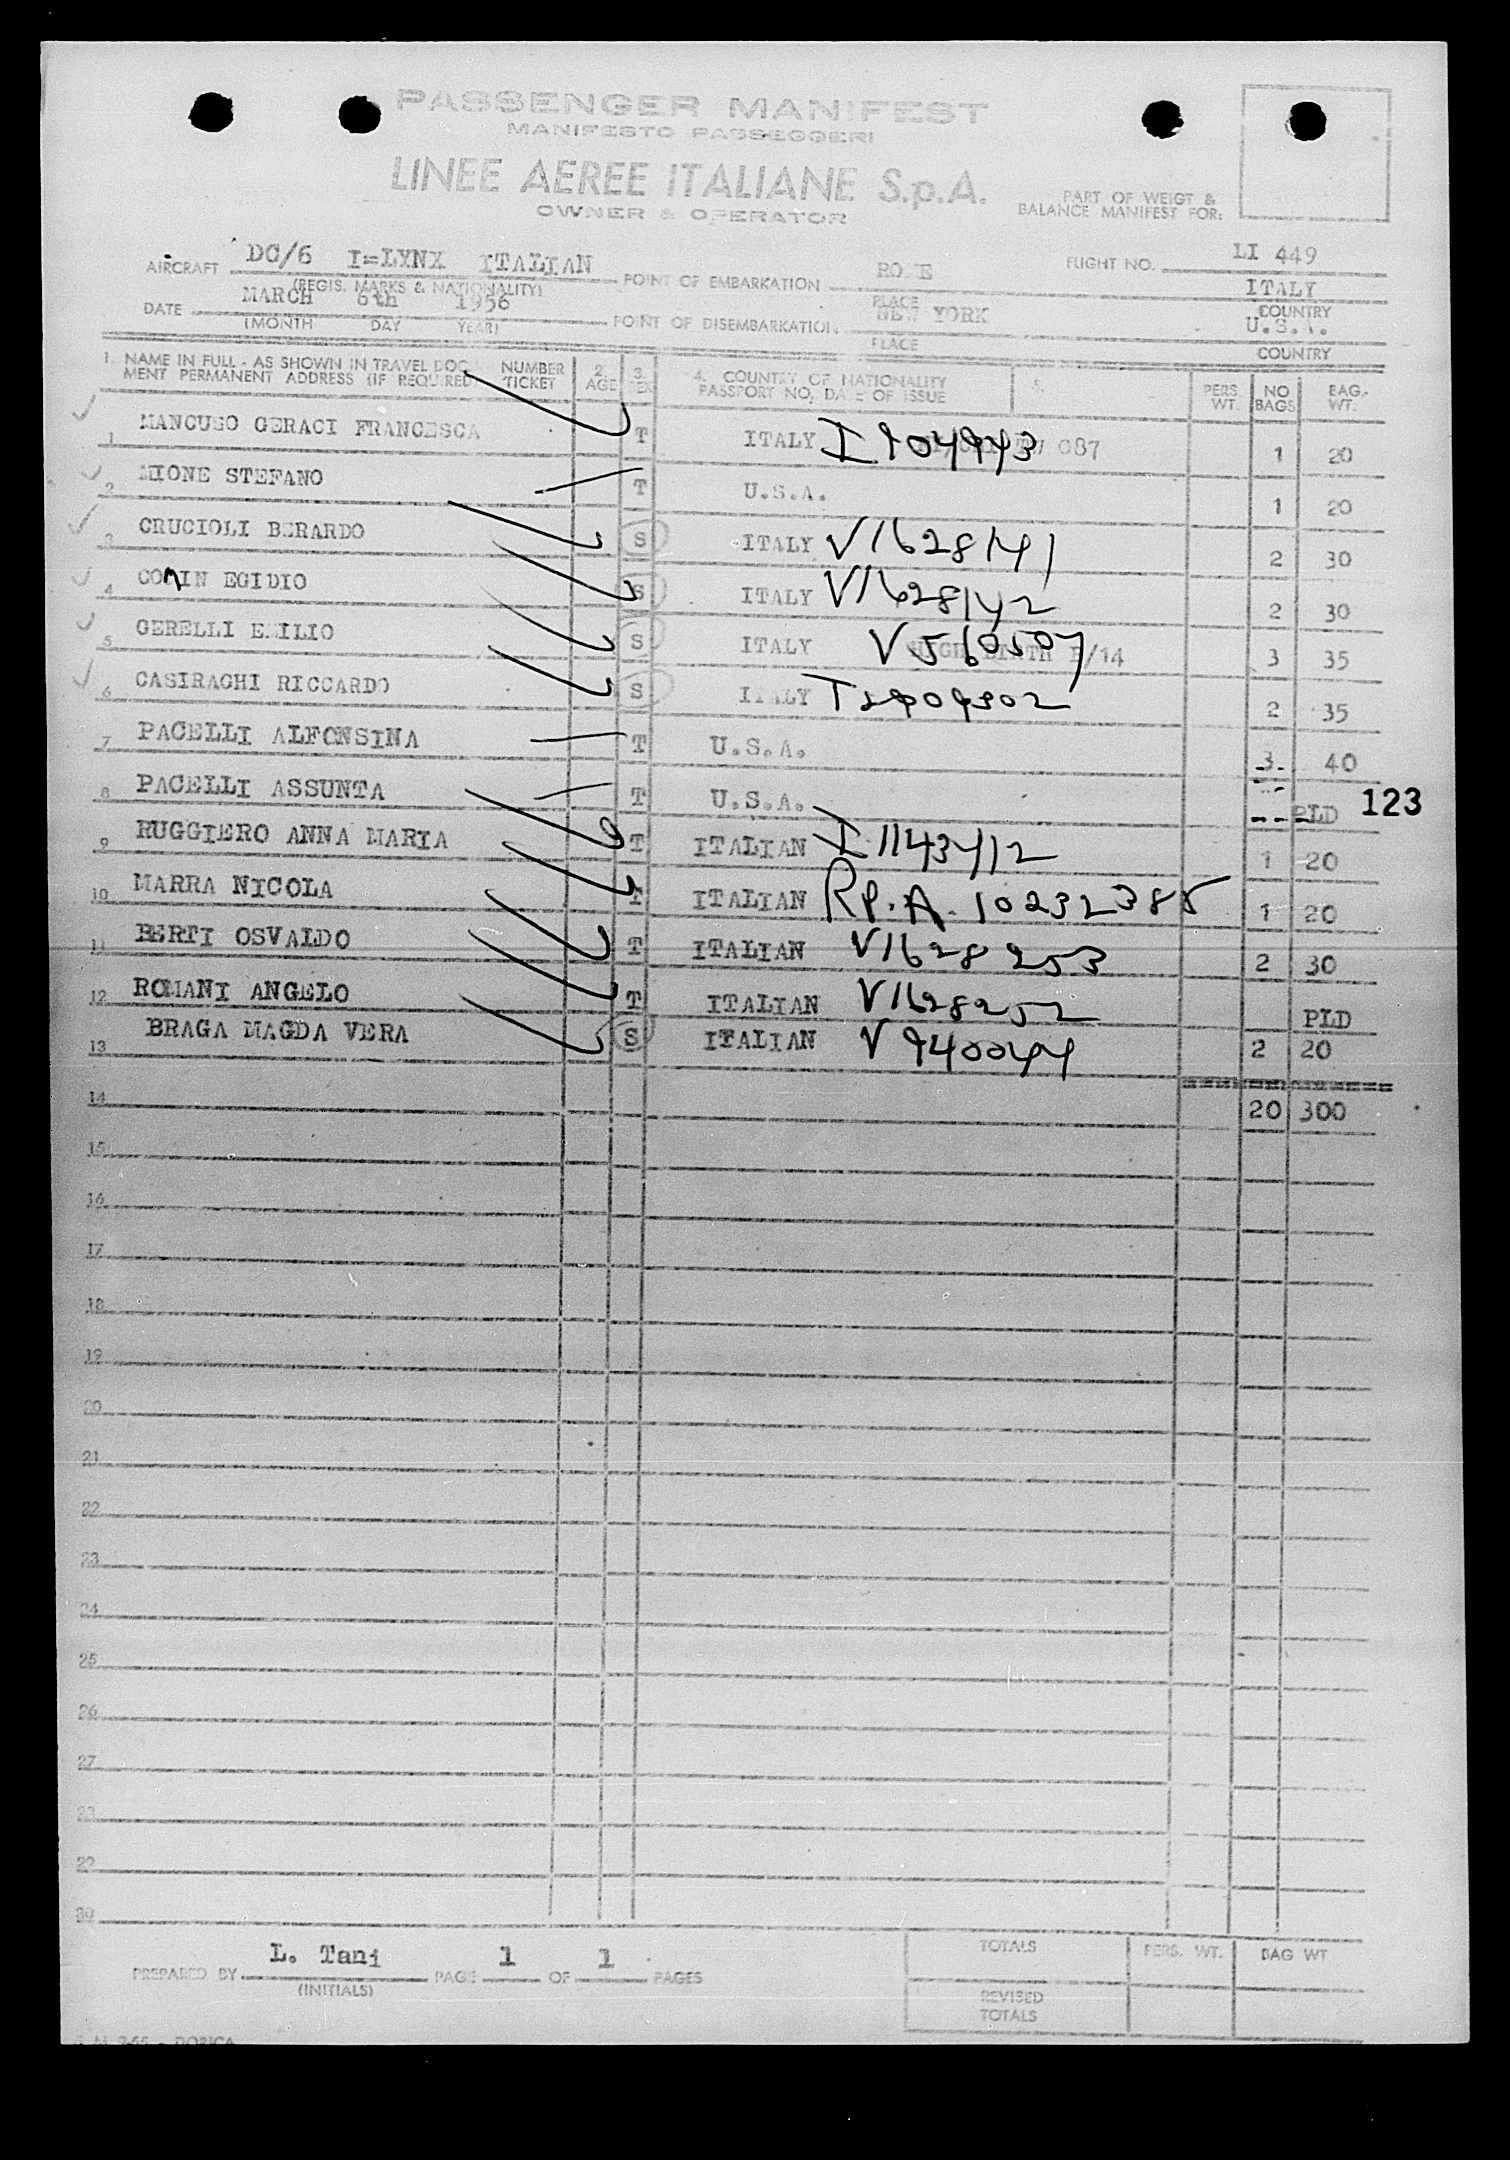 PASSENGER MANIFEST
MANIFESTO PASSEGGERI
LINEE AEREE ITALIANE S.p.A.
OWNER & OPERATOR
PART OF WEIGT &
BALANCE MANIFEST FOR:
AIRCRAFT DC/6 I=LYNX ITALIAN POINT OF EMBARKATION ROME FLIGHT NO. LI 449
(REGIS. MARKS & NATIONALITY) PLACE ITALY
COUNTRY
DATE MARCH 6th 1956 POINT OF DISEMBARKATION NEW YORK U.S.A.
(MONTH DAY YEAR) PLACE COUNTRY
1. NAME IN FULL - AS SHOWN IN TRAVEL DOCU NUMBER 2. 3. 4. COUNTRY OF NATIONALITY 5. PERS. NO BAG.
MENT PERMANENT ADDRESS (IF REQUIRED) TICKET AGE SEX PASSPORT NO, DATE OF ISSUE WT. BAGS WT.
1 MANCUSO GERACI FRANCESCA T ITALY I 904943 087 1 20
2 MIONE STEFANO T U.S.A. 1 20
3 CRUCIOLI BERARDO S ITALY V1628141 2 30
4 COMIN EGIDIO S ITALY V1628142 2 30
5 GERELLI EMILIO S ITALY V 560507 /14 3 35
6 CASIRAGHI RICCARDO S ITALY 2 35
7 PACELLI ALFONSINA T U.S.A. 3. 40
8 PACELLI ASSUNTA T U.S.A. --- PLD 123
9 RUGGIERO ANNA MARIA T ITALIAN I 1143412 1 20
10 MARRA NICOLA T ITALIAN RP.A. 10232385 1 20
11 BERTI OSVALDO T ITALIAN V1628253 2 30
12 ROMANI ANGELO T ITALIAN V1628252 PLD
13 BRAGA MAGDA VERA S ITALIAN V 940044 2 20
14 20 300
15
16
17
18
19
20
21
22
23
24
25
26
27
28
29
30
PREPARED BY L. Tani PAGE 1 OF 1 PAGES TOTALS PERS. WT. BAG WT
(INITIALS) REVISED
TOTALS